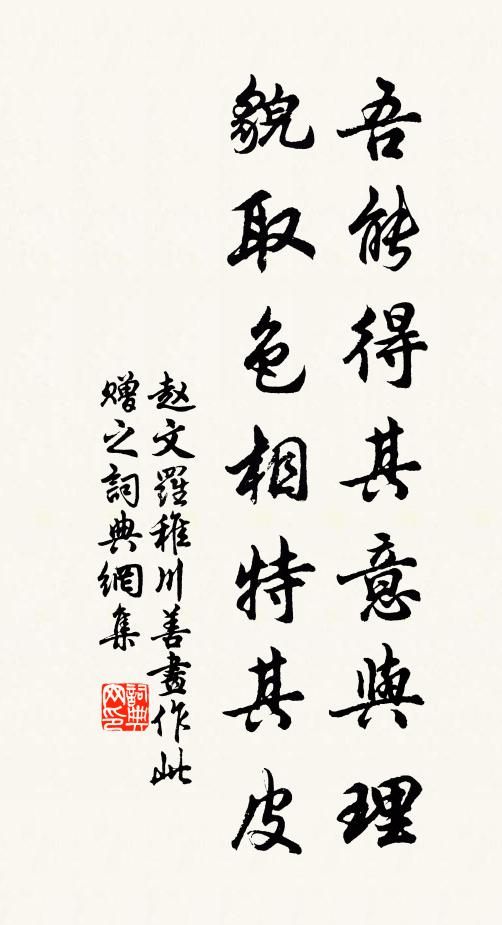 吾能得其意與理
貌取色相特其皮
赵文羅稚川善畫作此
贈之詞典網集
詞典
网印